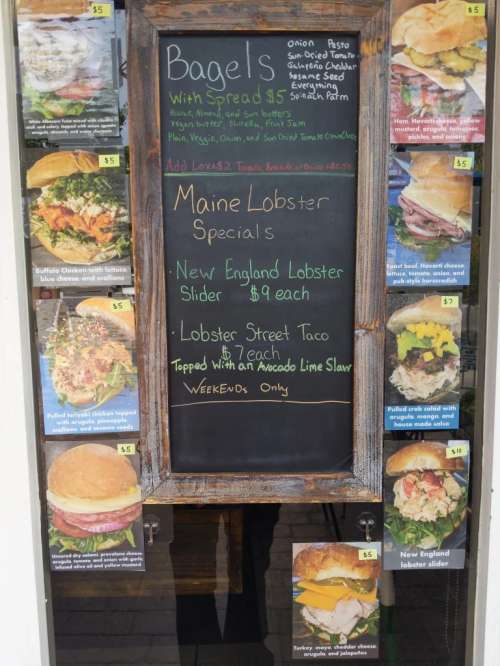 Bagels
Onion Pesto
Sun-Dried Tomato
Jalapeño Cheddar
Sesame Seed
Everything
Spinach Parm
With Spread $5
Peanut, Almond, and Sun butters
Vegan butter, Nutella, Fruit Jam
Plain, Veggie, Onion, and Sun Dried Tomato
Add Lox $2
Maine Lobster
Specials
· New England Lobster
Slider $9 each
· Lobster Street Taco
$7 each
Topped With an Avocado Lime Slaw
WEEKENDS Only
$5
White Albacore Tuna
and celery, topped with
$5
Buffalo Chicken with lettuce,
blue cheese and scallions
$5
Pulled teriyaki chicken topped
with arugula, pineapple
scallions and sesame seeds
$5
Uncured dry salami, provolone cheese,
arugula, tomato and onion with garlic
infused olive oil and yellow mustard
$5
Ham, Havarti cheese, yellow
mustard, arugula, tomatoes,
pickles, and onions
$5
Roast beef, Havarti cheese
lettuce, tomato, onion, and
pub-style horseradish
$7
Pulled crab salad with
arugula, mango, and
house made salsa
$10
New England
lobster slider
$5
Turkey, mayo, cheddar cheese,
arugula, and jalapeños